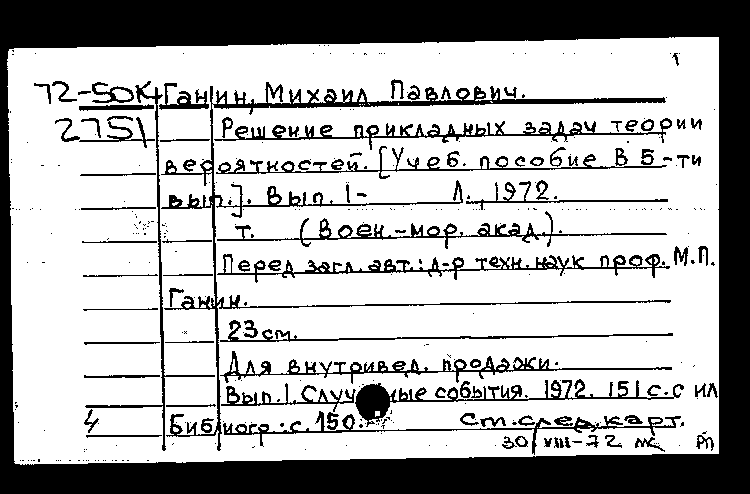 1
72-50К4 Ганин, Михаил Павлович.
2751 Решение прикладных задач теории
вероятностей. [Учеб. пособие В 5-ти
вып.]. Вып. 1- Л., 1972.
т. (Воен.-мор. акад.).
Перед загл. авт.: д-р техн. наук проф. М.П.
Ганин.
23 см.
Для внутривед. продажи.
Вып. 1. Случ ные события. 1972. 151 с. с ил
4 Библиогр.: с. 150. См. след. карт.
30/VIII-72 РП